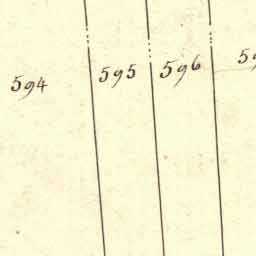 594 595 596